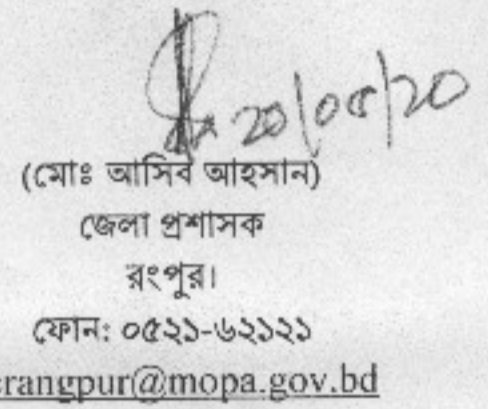 ২০/০৫/২০
(মোঃ আসিব আহসান)
জেলা প্রশাসক
রংপুর।
ফোন: ০৫২১-৬২১২১
erangpur@mopa.gov.bd